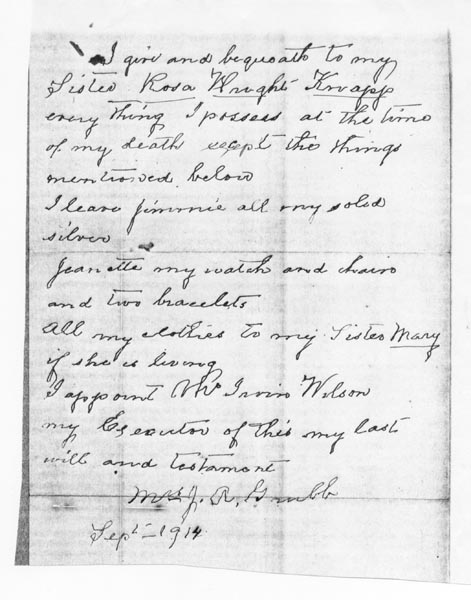 I give and bequeath to my
Sister Rosa Wright Knapp
every thing I possess at the time
of my death except the things
mentioned below
I leave Jimmie all my solid
silver
Jeanette my watch and chain
and two bracelets
All my clothes to my Sister Mary
if she is living
I appoint Mr Irvin Wilson
my Executor of this my last
will and testament
Mrs J. R. Grubb
Sept - 1914